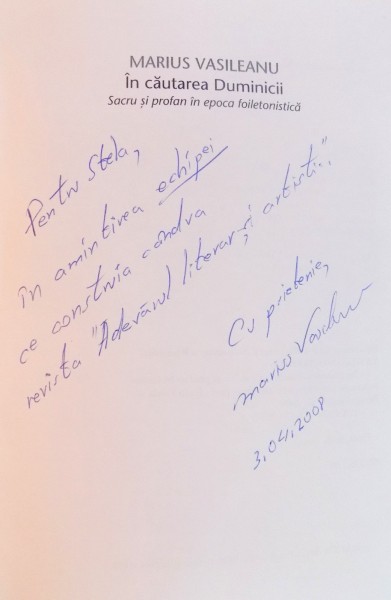 MARIUS VASILEANU
În căutarea Duminicii
Sacru și profan în epoca foiletonistică
Pentru Stela,
în amintirea echipei
ce construia cândva
revista "Adevărul literar și artistic".
Cu prietenie,
Marius Vasileanu
3.04.2008